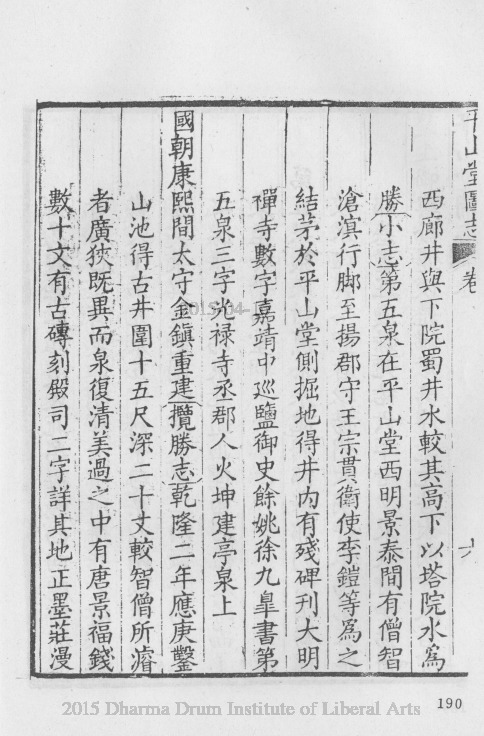 平山堂圖志 卷
西廊井與下院蜀井水較其高下以塔院水爲
勝小志第五泉在平山堂西明景泰間有僧智
滄滇行脚至揚郡守王宗貫衛使李鎧等爲之
結茅於平山堂側掘地得井内有殘碑刊大明
禪寺數字嘉靖中巡鹽御史餘姚徐九臯書第
五泉三字光禄寺丞郡人火坤建亭泉上
國朝康熙間太守金鎮重建攬勝志乾隆二年應庚鑿
山池得古井圍十五尺深二十丈較智僧所濬
者廣狹既異而泉復清美過之中有唐景福錢
數十文有古磚刻殿司二字詳其地正墨莊漫
190
2015 Dharma Drum Institute of Liberal Arts